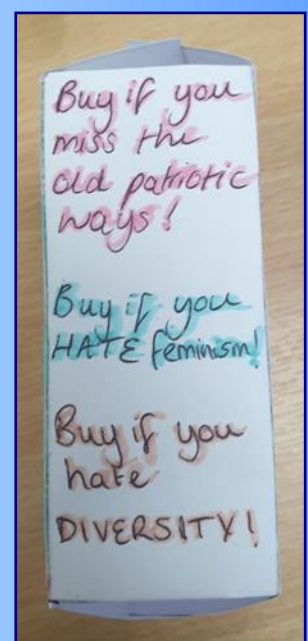 Buy if you
miss the
old patriotic
ways!
Buy if you
HATE feminism!
Buy if you
hate
DIVERSITY!